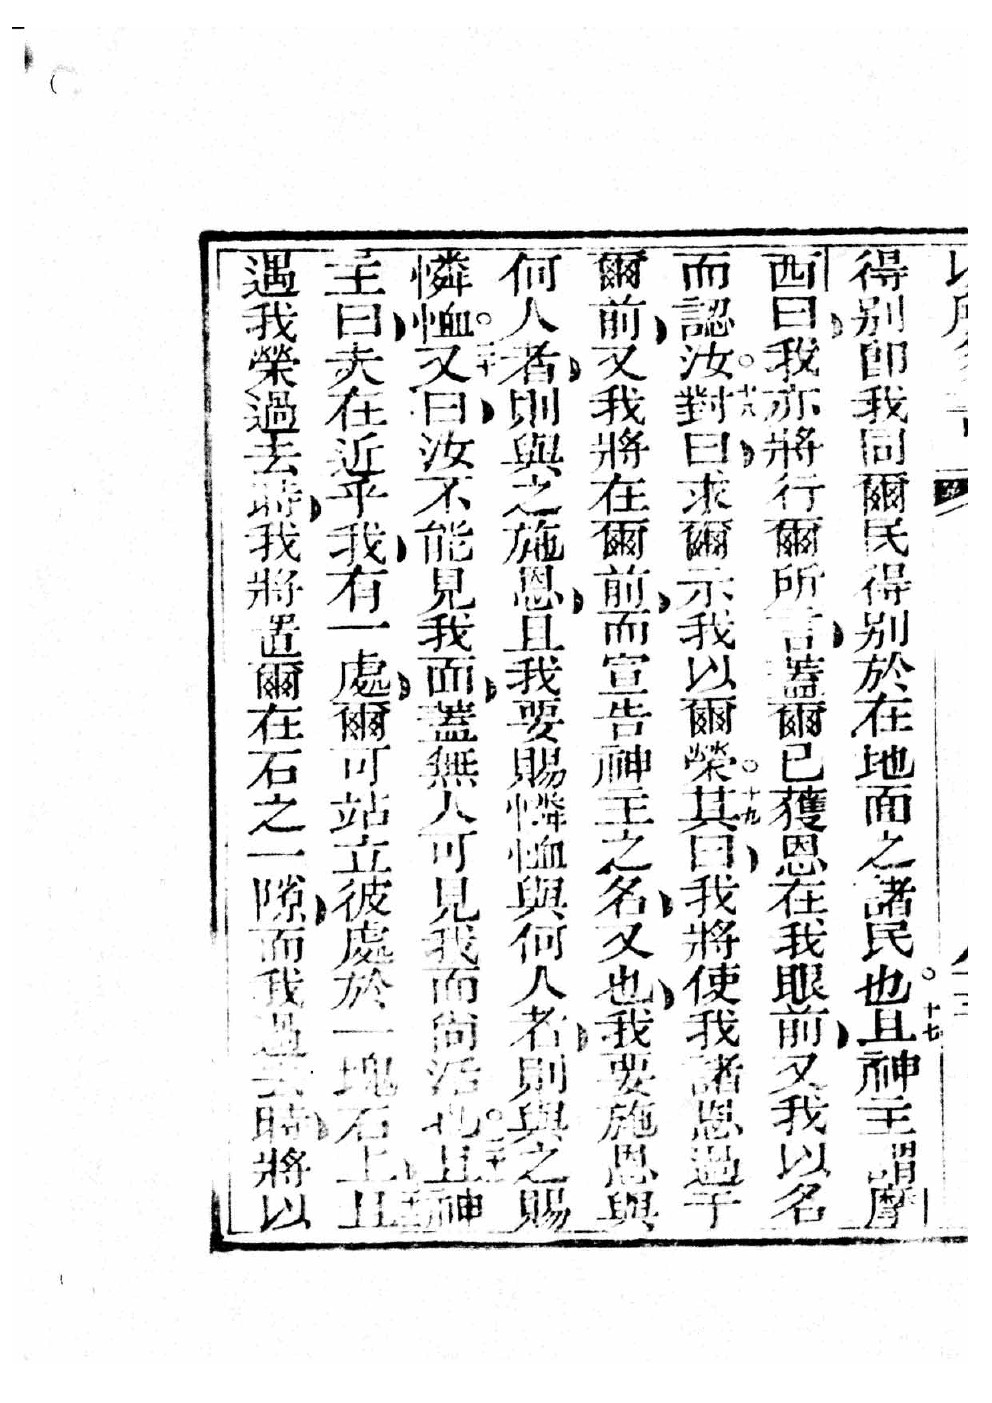 得別即我同爾民得別於在地面之諸民也。十七且神主謂摩
西曰我亦將行爾所言蓋爾已獲恩在我眼前又我以名
而認汝。十八對曰求爾示我以爾榮。十九其曰我將使我諸恩過于
爾前又我將在爾前而宣告神主之名又也我要施恩與
何人者則與之施恩且我要賜憐恤與何人者則與之賜
憐恤。二十又曰汝不能見我面蓋無人可見我而尚活也。二十一且神
主曰夫在近乎我有一處爾可站立彼處於一塊石上二十二且
遇我榮過去時我將置爾在石之一隙而我過去時將以